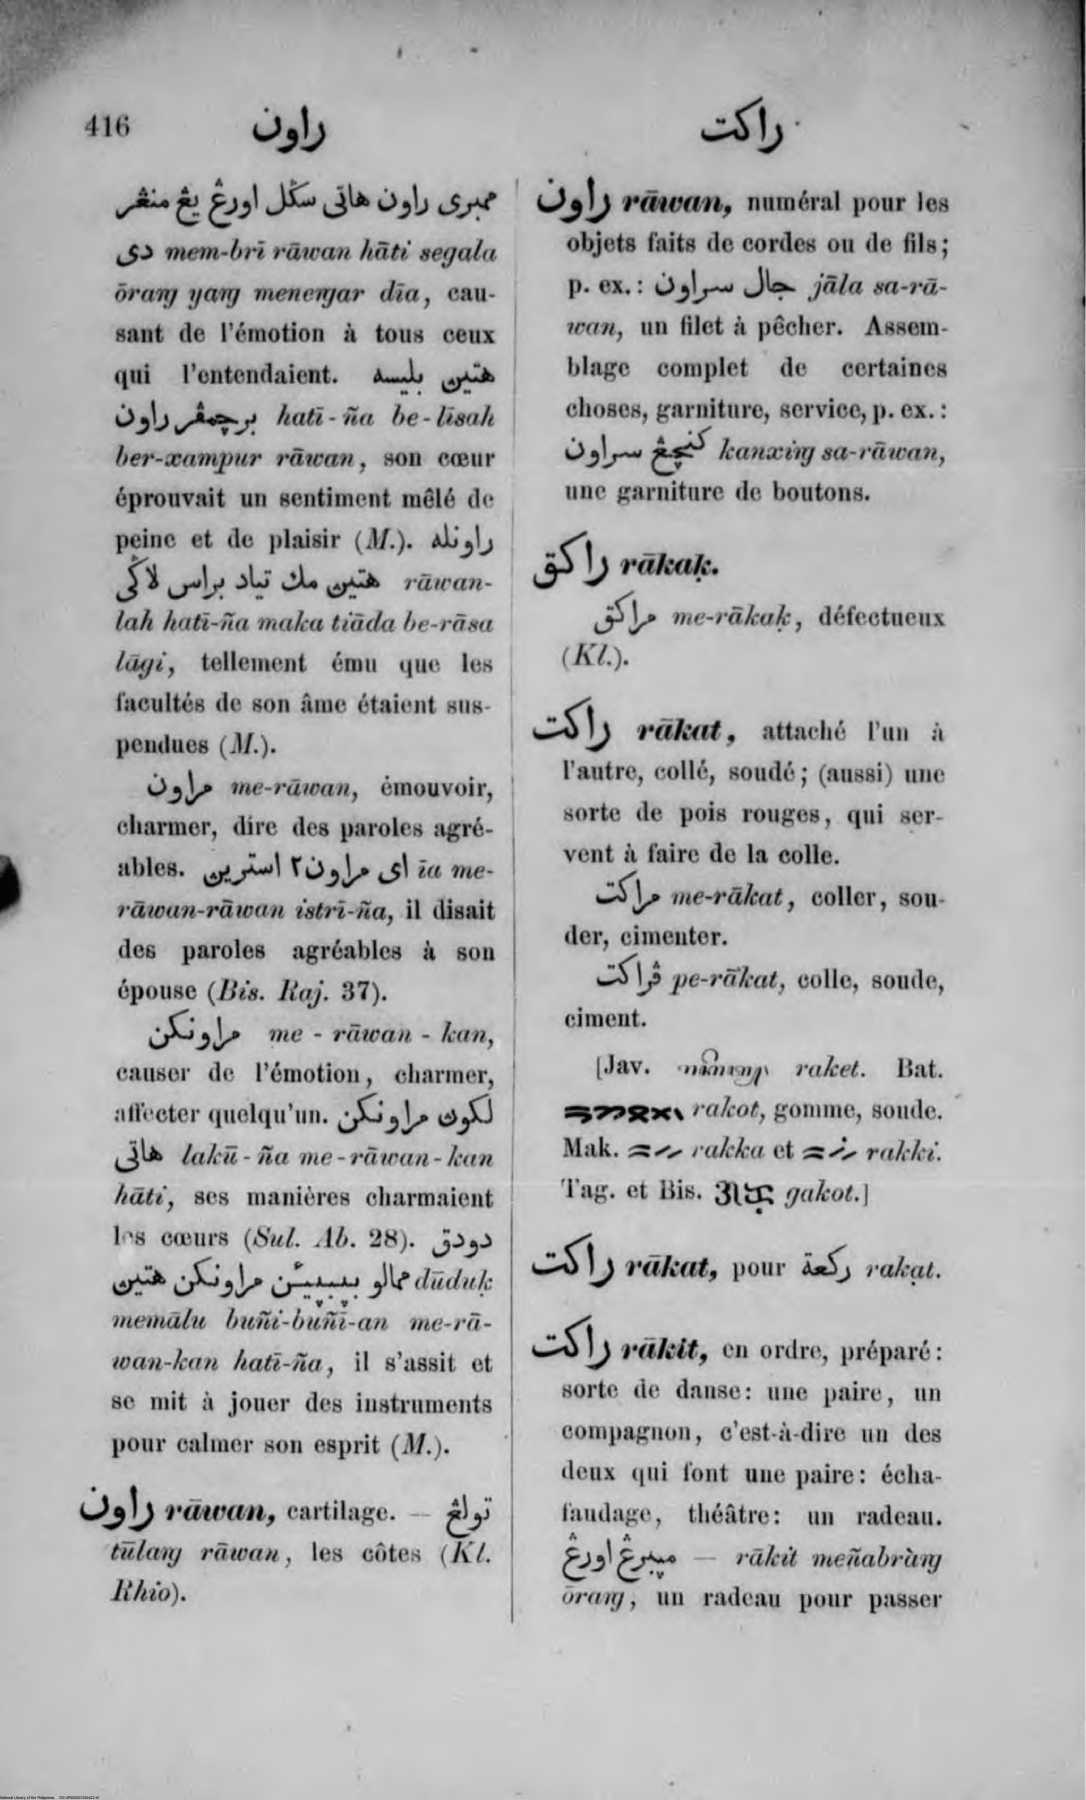 416
راون
راكت
ممبري راون هاتي سݢل اورڠ يڠ منڠر
دي mem-brī rāwan hāti segala
ōraŋ yaŋ meneŋar dīa, cau-
sant de l'émotion à tous ceux
qui l'entendaient. هتيڽ بليسه
برچمڤر راون hatī-ña be-līsah
ber-xampur rāwan, son cœur
éprouvait un sentiment mêlé de
peine et de plaisir (M.). راونله
هتيڽ مك تياد براس لاݢي rāwan-
lah hatī-ña maka tiāda be-rāsa
lāgi, tellement ému que les
facultés de son âme étaient sus-
pendues (M.).
مراون me-rāwan, émouvoir,
charmer, dire des paroles agré-
ables. اي مراون٢ استريڽ īa me-
rāwan-rāwan istrī-ña, il disait
des paroles agréables à son
épouse (Bis. Raj. 37).
مراونكن me-rāwan-kan,
causer de l'émotion, charmer,
affecter quelqu'un. لكوڽ مراونكن
هاتي lakū-ña me-rāwan-kan
hāti, ses manières charmaient
les cœurs (Sul. Ab. 28). دودق
ممالو مراونكن هتيڽ dūduḳ
memālu buñi-buñī-an me-rā-
wan-kan hatī-ña, il s'assit et
se mit à jouer des instruments
pour calmer son esprit (M.).
راون rāwan, cartilage. — تولڠ
tūlaŋ rāwan, les côtes (Kl.
Rhio).
راون rāwan, numéral pour les
objets faits de cordes ou de fils;
p. ex.: جال سراون jāla sa-rā-
wan, un filet à pêcher. Assem-
blage complet de certaines
choses, garniture, service, p. ex.:
كنچڠ سراون kanxiŋ sa-rāwan,
une garniture de boutons.
راكق rākaḳ.
مراكق me-rākaḳ, défectueux
(Kl.).
راكت rākat, attaché l'un à
l'autre, collé, soudé; (aussi) une
sorte de pois rouges, qui ser-
vent à faire de la colle.
مراكت me-rākat, coller, sou-
der, cimenter.
ڤراكت pe-rākat, colle, soude,
ciment.
[Jav. raket. Bat.
rakot, gomme, soude.
Mak. rakka et rakki.
Tag. et Bis. gakot.]
راكت rākat, pour ركعة rakạt.
راكت rākit, en ordre, préparé:
sorte de danse: une paire, un
compagnon, c'est-à-dire un des
deux qui font une paire: écha-
faudage, théâtre: un radeau.
اورڠ — rākit meñabràŋ
ōraŋ, un radeau pour passer